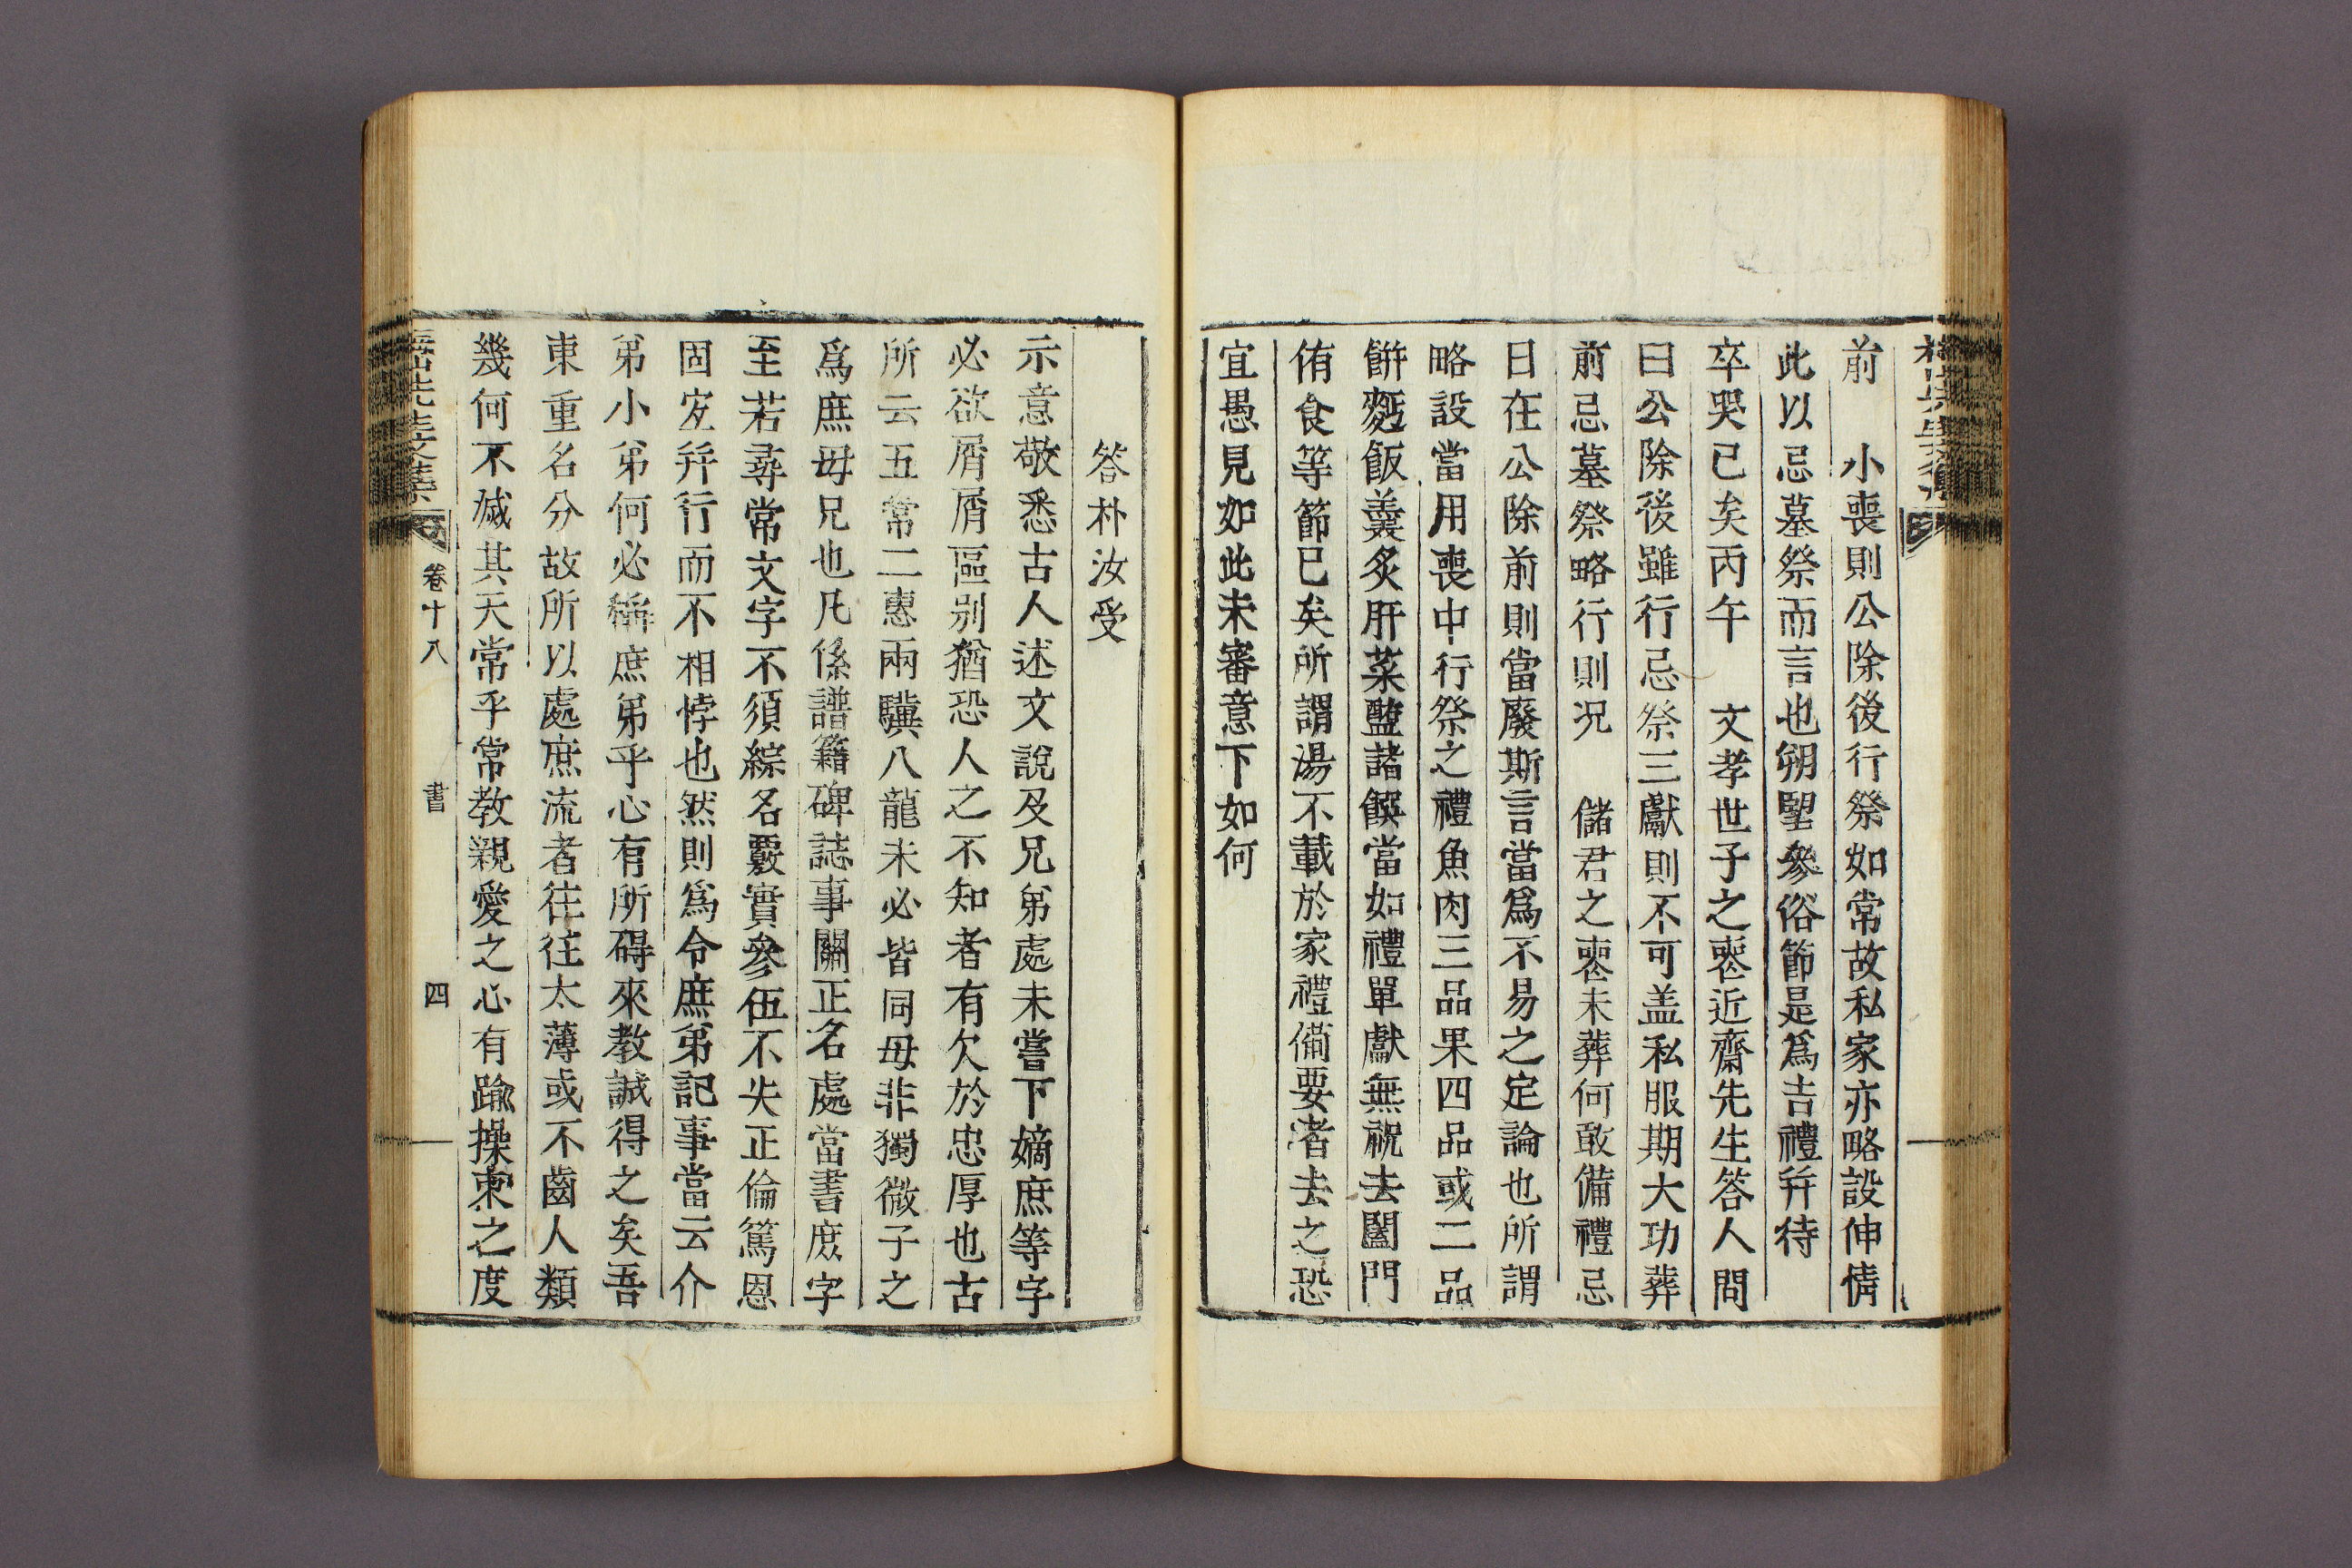 前　小喪則公除後行祭如常故私家亦略設伸情
此以忌墓祭而言也朔望參俗節是爲吉禮幷待
卒哭已矣丙午　文孝世子之喪近齋先生答人問
曰公除後雖行忌祭三獻則不可盖私服期大功葬
前忌墓祭略行則况　儲君之喪未葬何敢備禮忌
日在公除前則當廢斯言當爲不易之定論也所謂
略設當用喪中行祭之禮魚肉三品果四品或二品
餠麪飯羹炙肝菜鹽諸饌當如禮單獻無祝去闔門
侑食等節已矣所謂湯不載於家禮備要者去之恐
宜愚見如此未審意下如何
答朴汝受
示意敬悉古人述文說及兄弟處未嘗下嫡庶等字
必欲屑屑區別猶恐人之不知者有欠於忠厚也古
所云五常二惠兩驥八龍未必皆同母非獨微子之
爲庶母兄也凡係譜籍碑誌事關正名處當書庶字
至若尋常文字不須綜名覈實參伍不失正倫篤恩
固宜幷行而不相悖也然則爲令庶弟記事當云介
弟小弟何必稱庶弟乎心有所碍來教誠得之矣吾
東重名分故所以處庶流者往往太薄或不齒人類
幾何不滅其天常乎常教親愛之心有踰操束之度
先生文集 卷十八 書 四